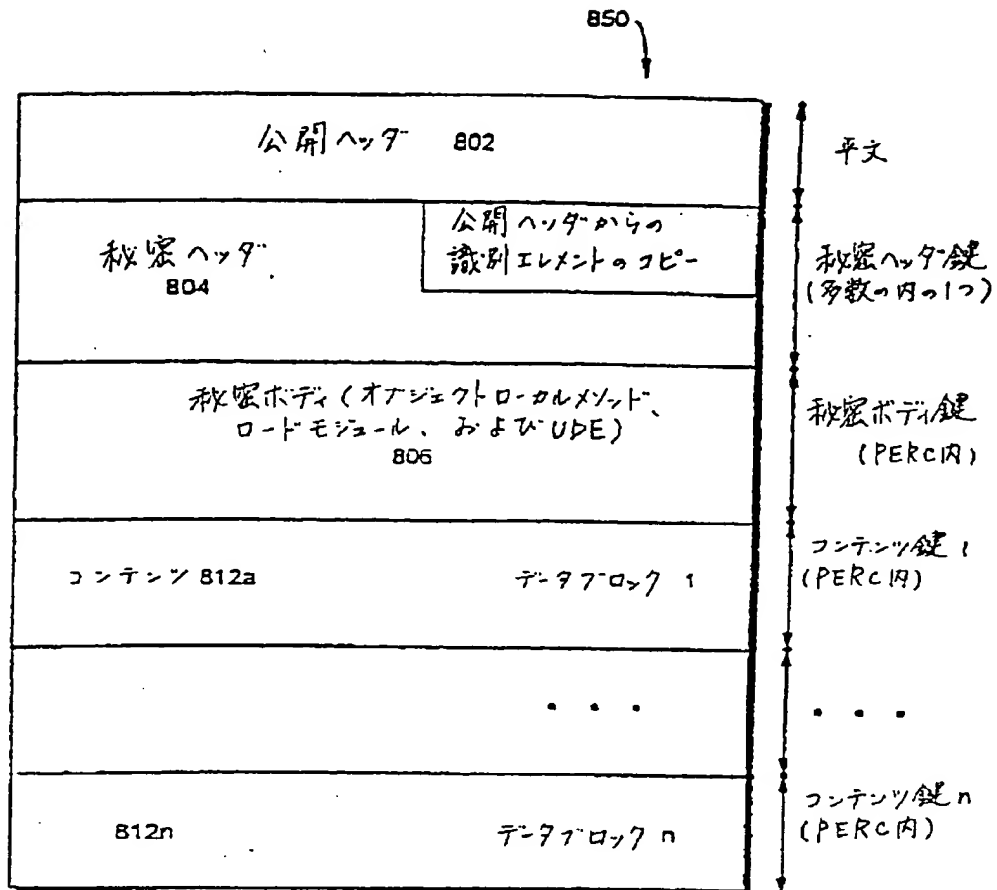 850
公開ヘッダ 802
平文
秘密ヘッダ
804
公開ヘッダからの
識別エレメントのコピー
秘密ヘッダ鍵
(多数の内の1つ)
秘密ボディ(オブジェクトローカルメソッド、
ロードモジュール、およびUDE)
806
秘密ボディ鍵
(PERC内)
コンテンツ 812a データブロック 1
コンテンツ鍵 1
(PERC内)
• • •
• • •
812n データブロック n
コンテンツ鍵 n
(PERC内)